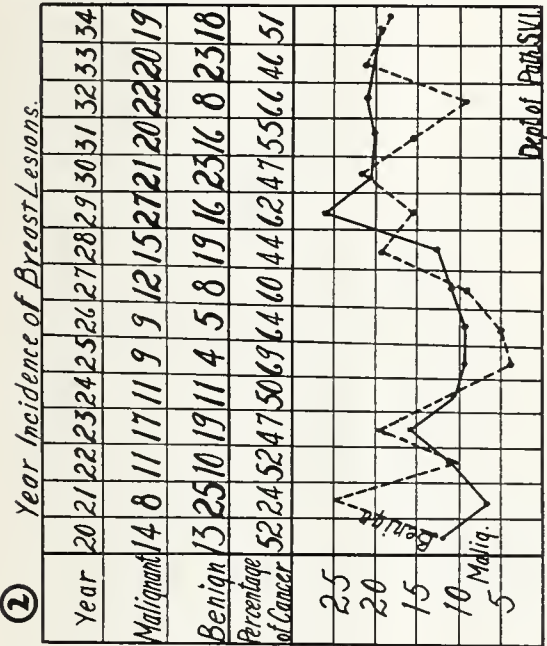 ②
Year Incidence of Breast Lesions.
Year 20 21 22 23 24 25 26 27 28 29 30 31 32 33 34
Malignant 14 8 11 17 11 9 9 12 15 27 21 20 22 20 19
Benign 13 25 10 19 11 4 5 8 19 16 23 16 8 23 18
Percentage
of Cancer 52 24 52 47 50 69 64 60 44 62 47 55 66 46 51
25
20
15
10
5
Benign
Malig.
Dept of Path. S.V.I.